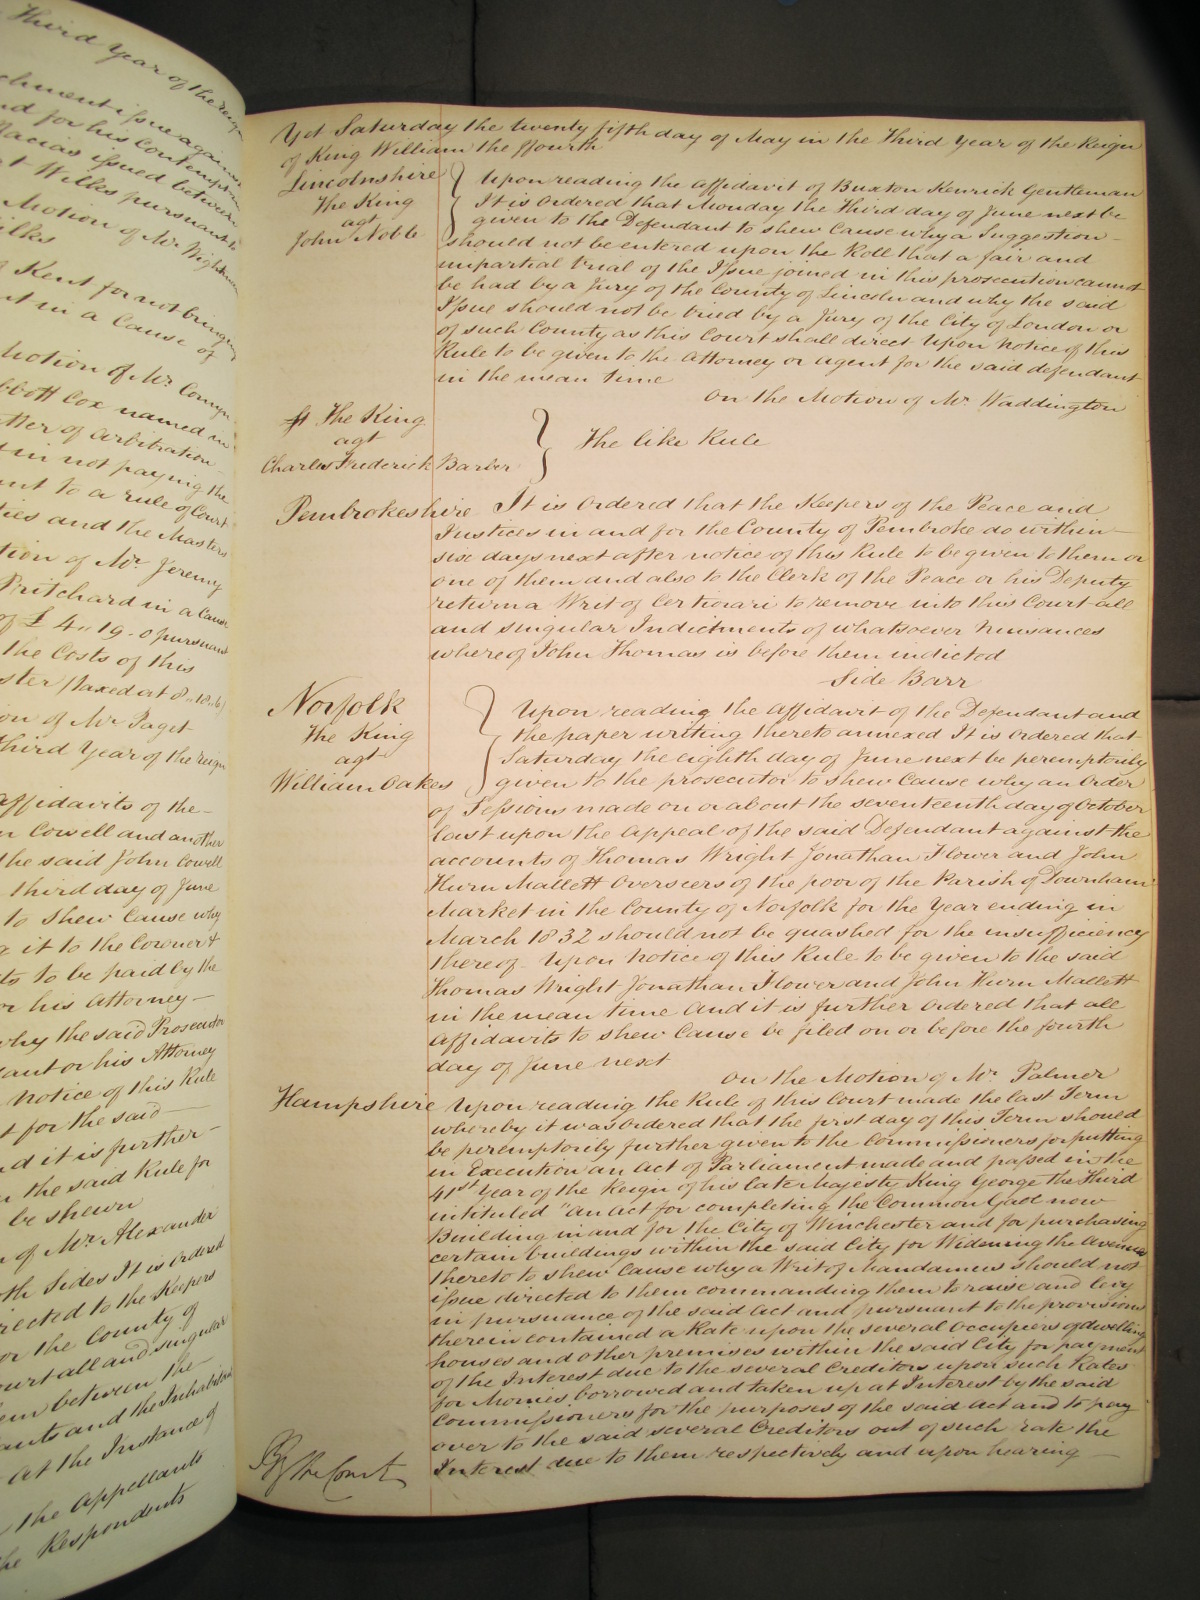 Third Year of the reign
chment issue against
nd for his Contempt
Macias issued between
t Wilks pursuant to
Motion of Mr Wightman
ilkes
Kent for not bringing
nt in a Cause of
Motion of Mr Comyn
bbott Cox named in
tter of arbitration
in not paying the
nt to a rule of Court
ties and the Masters
tion of Mr Jeremy
Pritchard in a Cause
of £ 4 " 19 - 0 pursuant
the Costs of this
ster taxed at 8 " 18 " 6
on of Mr Paget
Third Year of the reign
affidavits of the
n Cowell and another
the said John Cowell
third day of June
to shew Cause why
g it to the Coroner &
ts to be paid by the
or his Attorney
why the said Prosecutor
dant or his Attorney
notice of this Rule
t for the said
nd it is further
n the said Rule for
be shewn
n of Mr Alexander
oth Sides It is ordered
rected to the Keepers
or the County of
ourt all and singular
em between the
ants and the Inhabitants
at the Instance of
the Appellants
he Respondents
Yet Saturday the twenty fifth day of May in the Third Year of the Reign
of King William the ffourth
Lincolnshire
The King
agt
John Noble
Upon reading the affidavit of Buxton Kenrick Gentleman
It is Ordered that Monday the Third day of June next be
given to the Defendant to shew Cause why a Suggestion
should not be entered upon the Roll that a fair and
impartial trial of the Issue joined in this prosecution cannot
be had by a Jury of the County of Lincoln and why the said
Issue should not be tried by a Jury of the City of London or
of such County as this Court shall direct Upon notice of this
Rule to be given to the Attorney or agent for the said defendant
in the mean time
On the Motion of Mr. Waddington
The King
agt
Charles Frederick Barber
The like Rule
Pembrokeshire It is Ordered that the Keepers of the Peace and
Justices in and for the County of Pembroke do within
six days next after notice of this Rule to be given to them or
one of them and also to the Clerk of the Peace or his Deputy
return a Writ of Certiorari to remove into this Court all
and singular Indictments of whatsoever Nuisances
whereof John Thomas is before them indicted
Side Barr
Norfolk
The King
agt
William Oakes
Upon reading the Affidavit of the Defendant and
the paper writing thereto annexed It is ordered that
Saturday the eighth day of June next be peremptorily
given to the prosecutor to shew Cause why an Order
of Sessions made on or about the seventeenth day of October
last upon the Appeal of the said Defendant against the
accounts of Thomas Wright Jonathan Flower and John
Hurn Mallett Overseers of the poor of the Parish of Downham
Market in the County of Norfolk for the Year ending in
March 1832 should not be quashed for the insufficiency
thereof Upon notice of this Rule to be given to the said
Thomas Wright Jonathan Flower and John Hurn Mallett
in the mean time And it is further Ordered that all
Affidavits to shew Cause be filed on or before the fourth
day of June next
On the Motion of Mr. Palmer
Hampshire Upon reading the Rule of this Court made the last Term
whereby it was Ordered that the first day of this Term should
be peremptorily further given to the Commissioners for putting
in Execution an Act of Parliament made and passed in the
41st Year of the Reign of his late Majesty King George the Third
intituled "An Act for completing the Common Gaol now
Building in and for the City of Winchester and for purchasing
certain buildings within the said City for Widening the Avenues
thereto to shew Cause why a Writ of Mandamus should not
issue directed to them commanding them to raise and levy
in pursuance of the said Act and pursuant to the provisions
therein contained a Rate upon the several Occupiers of dwelling
houses and other premises within the said City for payment
of the Interest due to the several Creditors upon such Rates
for Monies borrowed and taken up at Interest by the said
Commissioners for the purposes of the said Act and to pay
over to the said several Creditors out of such rate the
Interest due to them respectively and upon hearing
By the Court